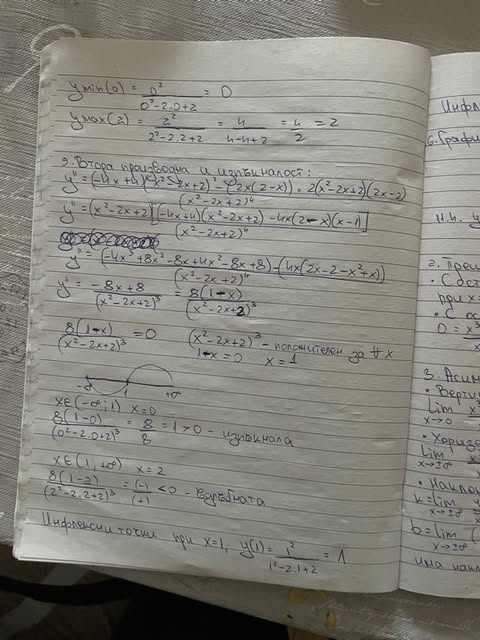 y min(0) = 0²/(0²-2.0+2) = 0
y max(2) = 2²/(2²-2.2+2) = 4/(4-4+2) = 4/2 = 2
5. Втора производна и изпъкналост:
y'' = ((-4x+4)(x²-2x+2)² - (2x(2-x)).2(x²-2x+2)(2x-2))/(x²-2x+2)⁴
y'' = (x²-2x+2)[(-4x+4)(x²-2x+2) - 4x(2-x)(x-1)]/(x²-2x+2)⁴
y'' = ((-4x³+8x²-8x+4x²-8x+8) - (4x(2x-2-x²+x))/(x²-2x+2)⁴
y'' = (-8x+8)/(x²-2x+2)³ = 8(1-x)/(x²-2x+2)³
8(1-x)/(x²-2x+2)³ = 0 (x²-2x+2)³ - положителен за ∀x
1-x=0 x=1
-∞ 1 +∞
x∈(-∞;1) x=0
8(1-0)/(0²-2.0+2)³ = 8/8 = 1 > 0 - изпъкнала
x∈(1,+∞) x=2
8(1-2)/(2²-2.2+2)³ = (-)/(+) < 0 - вдлъбната
Инфлексни точки при x=1, y(1) = 1²/(1²-2.1+2) = 1
Инфле
6. Графи
н.к. y
2. Пре
при x=
0 = x³
3. Асим
• Верти
Lim x²
x→0
• Хориз
Lim
x→±∞
• Накло
k = lim
x→±∞
b = lim (
x→±∞
има нак